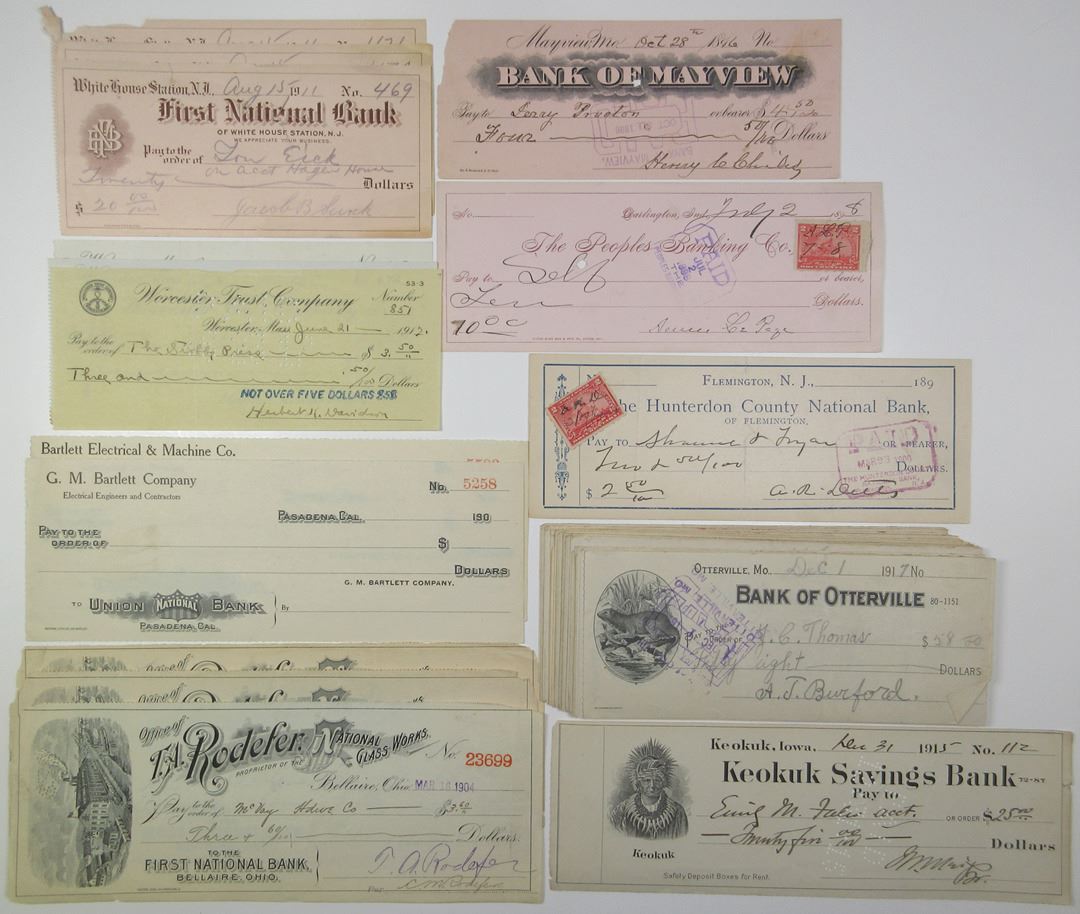 White House Station, N.J. Aug 15 1911 No. 469
First National Bank
OF WHITE HOUSE STATION, N.J.
WE APPRECIATE YOUR BUSINESS.
Pay to the order of Tom Eick
on acct Hagen House
Twenty Dollars
$ 20 00/100 Jacob B Lunk
53-3
Worcester Trust Company Number 851
Worcester, Mass June 21 1912
Pay to the order of The $ 3. 50/
Three and 50/100 Dollars
NOT OVER FIVE DOLLARS $5$
Herbert H. Davidson
Bartlett Electrical & Machine Co.
G. M. Bartlett Company
Electrical Engineers and Contractors
No. 5258
Pasadena, Cal. 190
Pay to the order of $
Dollars
G. M. BARTLETT COMPANY.
To Union National Bank By
Pasadena, Cal.
Office of
T.A. Rodefer.
PROPRIETOR OF THE
National Glass Works.
No. 23699
Bellaire, Ohio, MAR 16 1904
Pay to the order of McVay Hdwe Co $3.60
Three & 60/100 Dollars.
TO THE
FIRST NATIONAL BANK,
BELLAIRE, OHIO.
T. A. Rodefer
Per
Mayview, Mo. Oct 28th 1896 No.
BANK OF MAYVIEW
Pay to or bearer $ 4 50
Four 50/100 Dollars
Henry C Chiles
No. Darlington, Ind. July 2 1898
The Peoples Banking Co.
PAID
JUL 2
Pay to Self or bearer,
Ten Dollars.
10 00
Flemington, N. J., 189
The Hunterdon County National Bank,
OF FLEMINGTON.
Pay to or bearer,
Two & 50/100 Dollars.
PAID
MAR 23 1900
THE HUNTERDON CO. BANK,
$ 2 50
Otterville, Mo. Dec 1 1917 No
Bank of Otterville 80-1151
Pay to the order of C. Thomas $58 00
eight Dollars
A. J. Burford.
Keokuk, Iowa, Dec 31 1915 No. 112
Keokuk Savings Bank 72-87
Pay to
Emil M. acct. or order $25 00
Twenty five 00/100 Dollars
Keokuk
Safety Deposit Boxes for Rent.